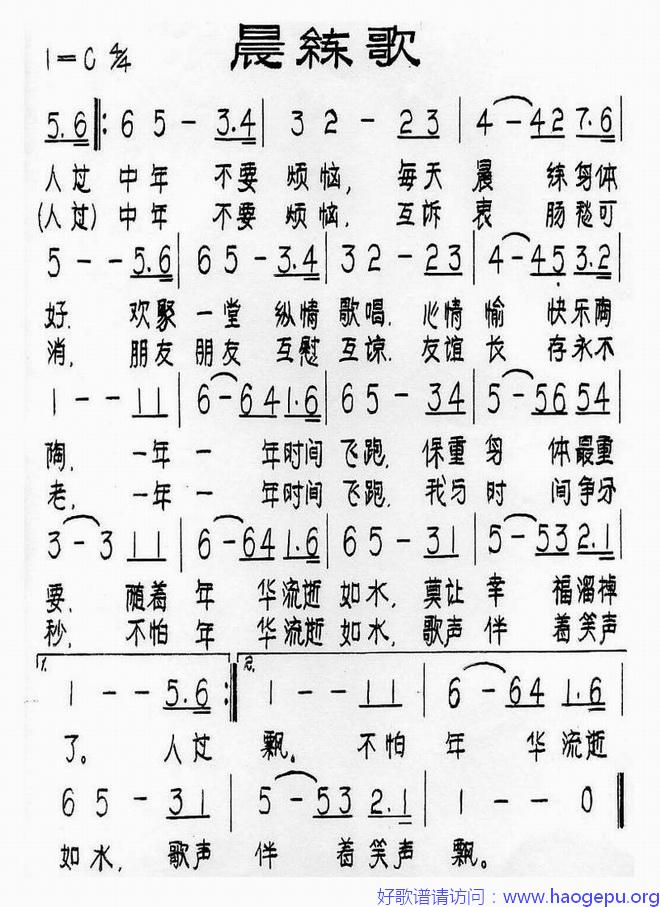 晨练歌
1=C 4/4
5.6 ‖: 6 5 - 3.4 | 3 2 - 23 | 4 - 42 7.6 |
人过 中年 不要 烦恼, 每天 晨 练身体
(人过) 中年 不要 烦恼, 互诉 衷 肠愁可
5 - - 5.6 | 6 5 - 3.4 | 3 2 - 23 | 4 - 45 3.2 |
好. 欢聚 一堂 纵情 歌唱. 心情 愉 快乐陶
消, 朋友 朋友 互慰 互谅. 友谊 长 存永不
1 - - 11 | 6 - 64 1.6 | 6 5 - 34 | 5 - 56 54 |
陶, 一年 一 年时间 飞跑, 保重 身 体最重
老, 一年 一 年时间 飞跑, 我与 时 间争分
3 - 3 11 | 6 - 64 1.6 | 6 5 - 31 | 5 - 53 2.1 |
要. 随着 年 华流逝 如水, 莫让 幸 福溜掉
秒, 不怕 年 华流逝 如水, 歌声 伴 着笑声
1. 1 - - 5.6 :‖ 2. 1 - - 11 | 6 - 64 1.6 |
了。 人过 飘。 不怕 年 华流逝
6 5 - 31 | 5 - 53 2.1 | 1 - - 0 ‖
如水, 歌声 伴 着笑声 飘。
好歌谱请访问：www.haogepu.org